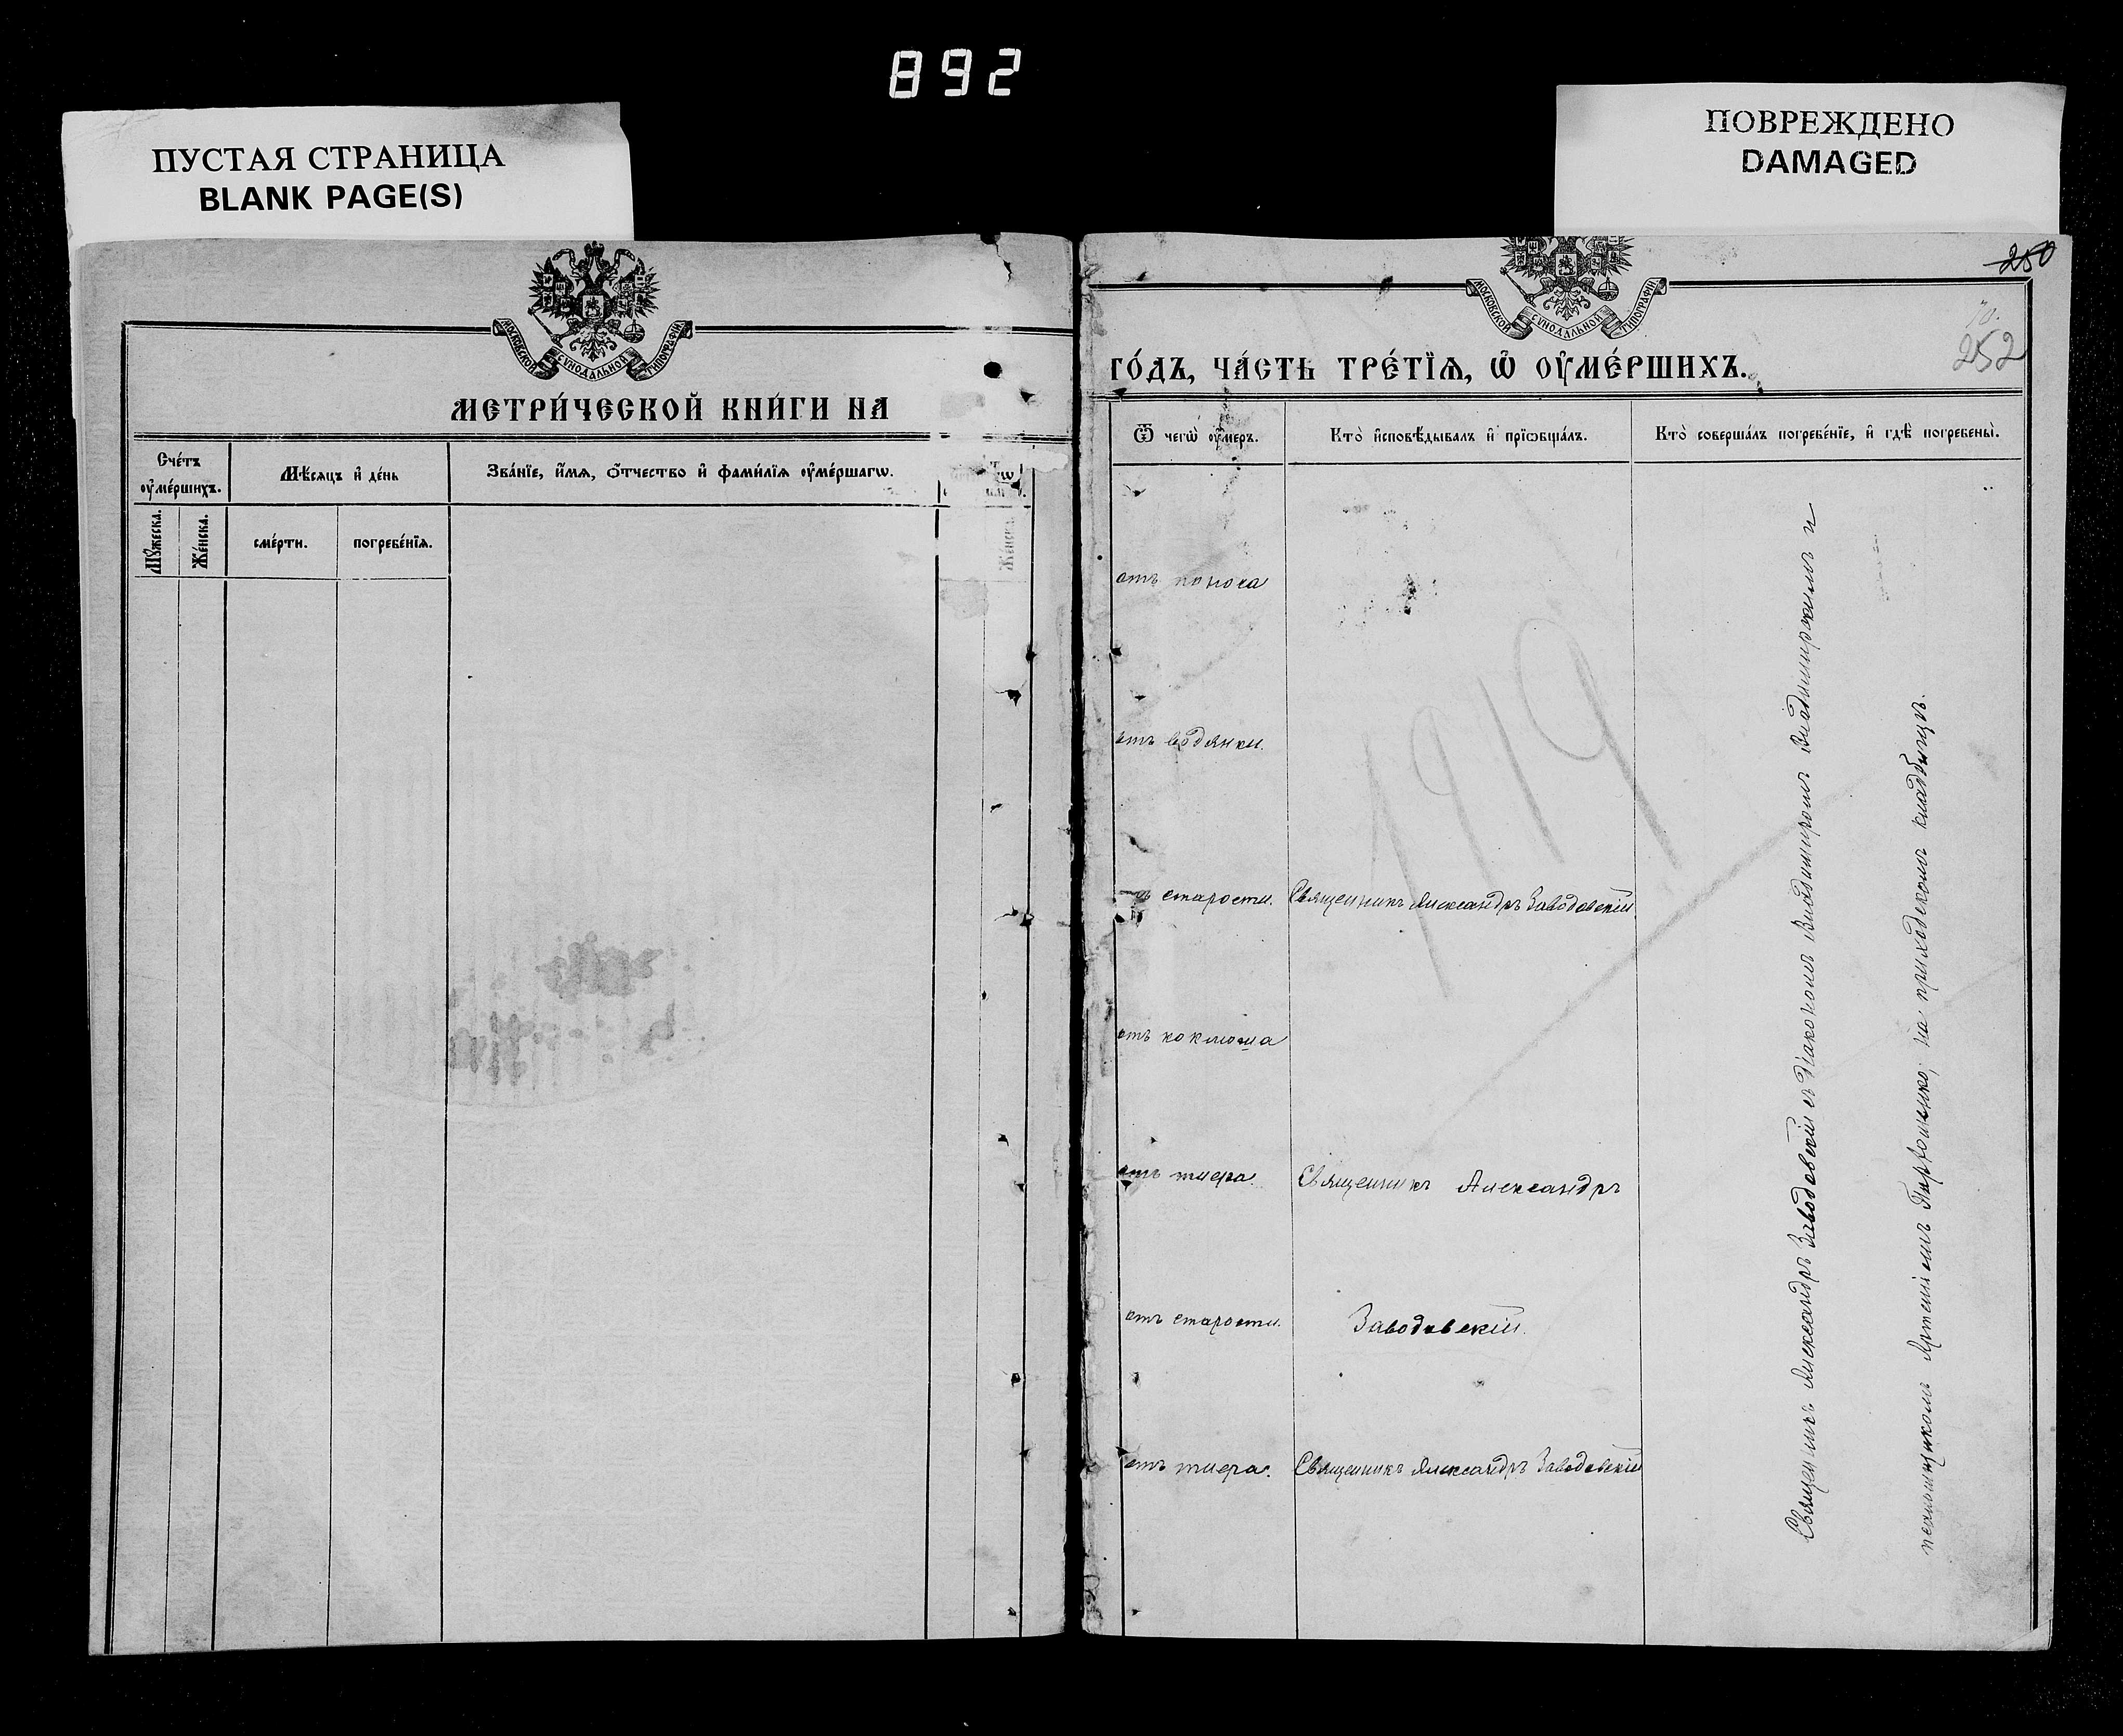 892
ПУСТАЯ СТРАНИЦА
BLANK PAGE(S)
ПОВРЕЖДЕНО
DAMAGED
МОСКОВСКОЙ СѴНОДАЛЬНОЙ ТИПОГРАФІИ
МЕТРИ́ЧЕСКОЙ КНИ́ГИ НА
Сче́тъ ᲂу҆ме́ршихъ.
Мѣ́сяцъ и҆ де́нь
Зва́нїе, и҆́мѧ, ѻ҆́тчество и҆ фами́лїѧ ᲂу҆ме́ршагѡ.
Мꙋ́жеска.
Же́нска.
сме́рти.
погребе́нїѧ.
Же́нска.
250
МОСКОВСКОЙ СѴНОДАЛЬНОЙ ТИПОГРАФІИ
70.
252
ГО́ДЪ, ЧА́СТЬ ТРЕ́ТЇѦ, Ѽ ОУ҆МЕ́РШИХЪ.
Ѿ чегѡ̀ ᲂу҆́меръ.
Кто̀ и҆сповѣ́дывалъ и҆ прїѡбща́лъ.
Кто̀ соверша́лъ погребе́нїе, и҆ гдѣ̀ погребены̀.
отъ поноса
отъ водянки.
1919
старости. Священникъ Александръ Заводовскій
отъ коклюша
отъ тифа. Священникъ Александръ
отъ старости. Заводовскій.
отъ тифа. Священникъ Александръ Заводовскій
Священникъ Александръ Заводовскій съ діакономъ Владимиромъ Владимирскимъ и
псаломщикомъ Артеміемъ Парфоменко; на приходскомъ кладбищѣ.